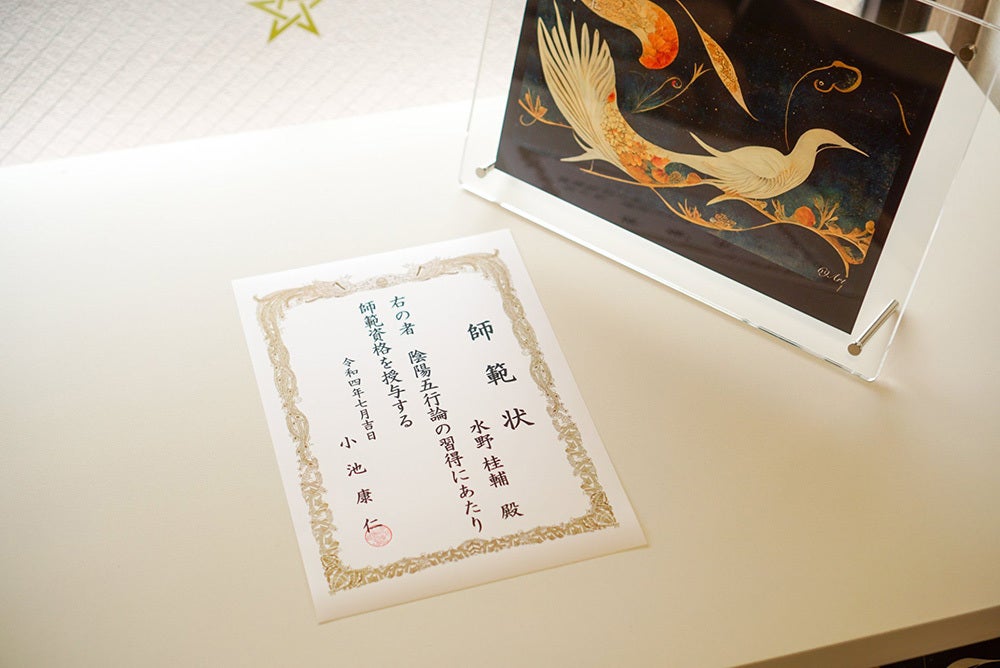 師範状
水野 桂輔 殿
右の者 陰陽五行論の習得にあたり
師範資格を授与する
令和四年七月吉日
小池康仁